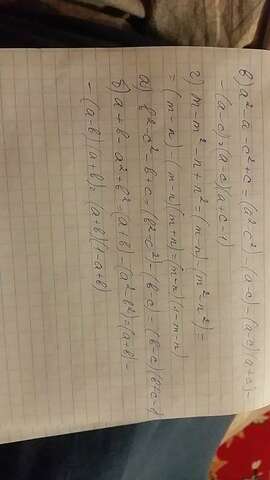 в) a²-a-c²+c=(a²-c²)-(a-c)=(a-c)(a+c)-
-(a-c)=(a-c)(a+c-1)
г) m-m²-n+n²=(m-n)-(m²-n²)=
=(m-n)-(m-n)(m+n)=(m-n)(1-m-n)
а) b²-c²-b+c=(b²-c²)-(b-c)=(b-c)(b+c-1)
б) a+b-a²+b²=(a+b)-(a²-b²)=(a-b)-
-(a-b)(a+b)=(a-b)(1-a+b)